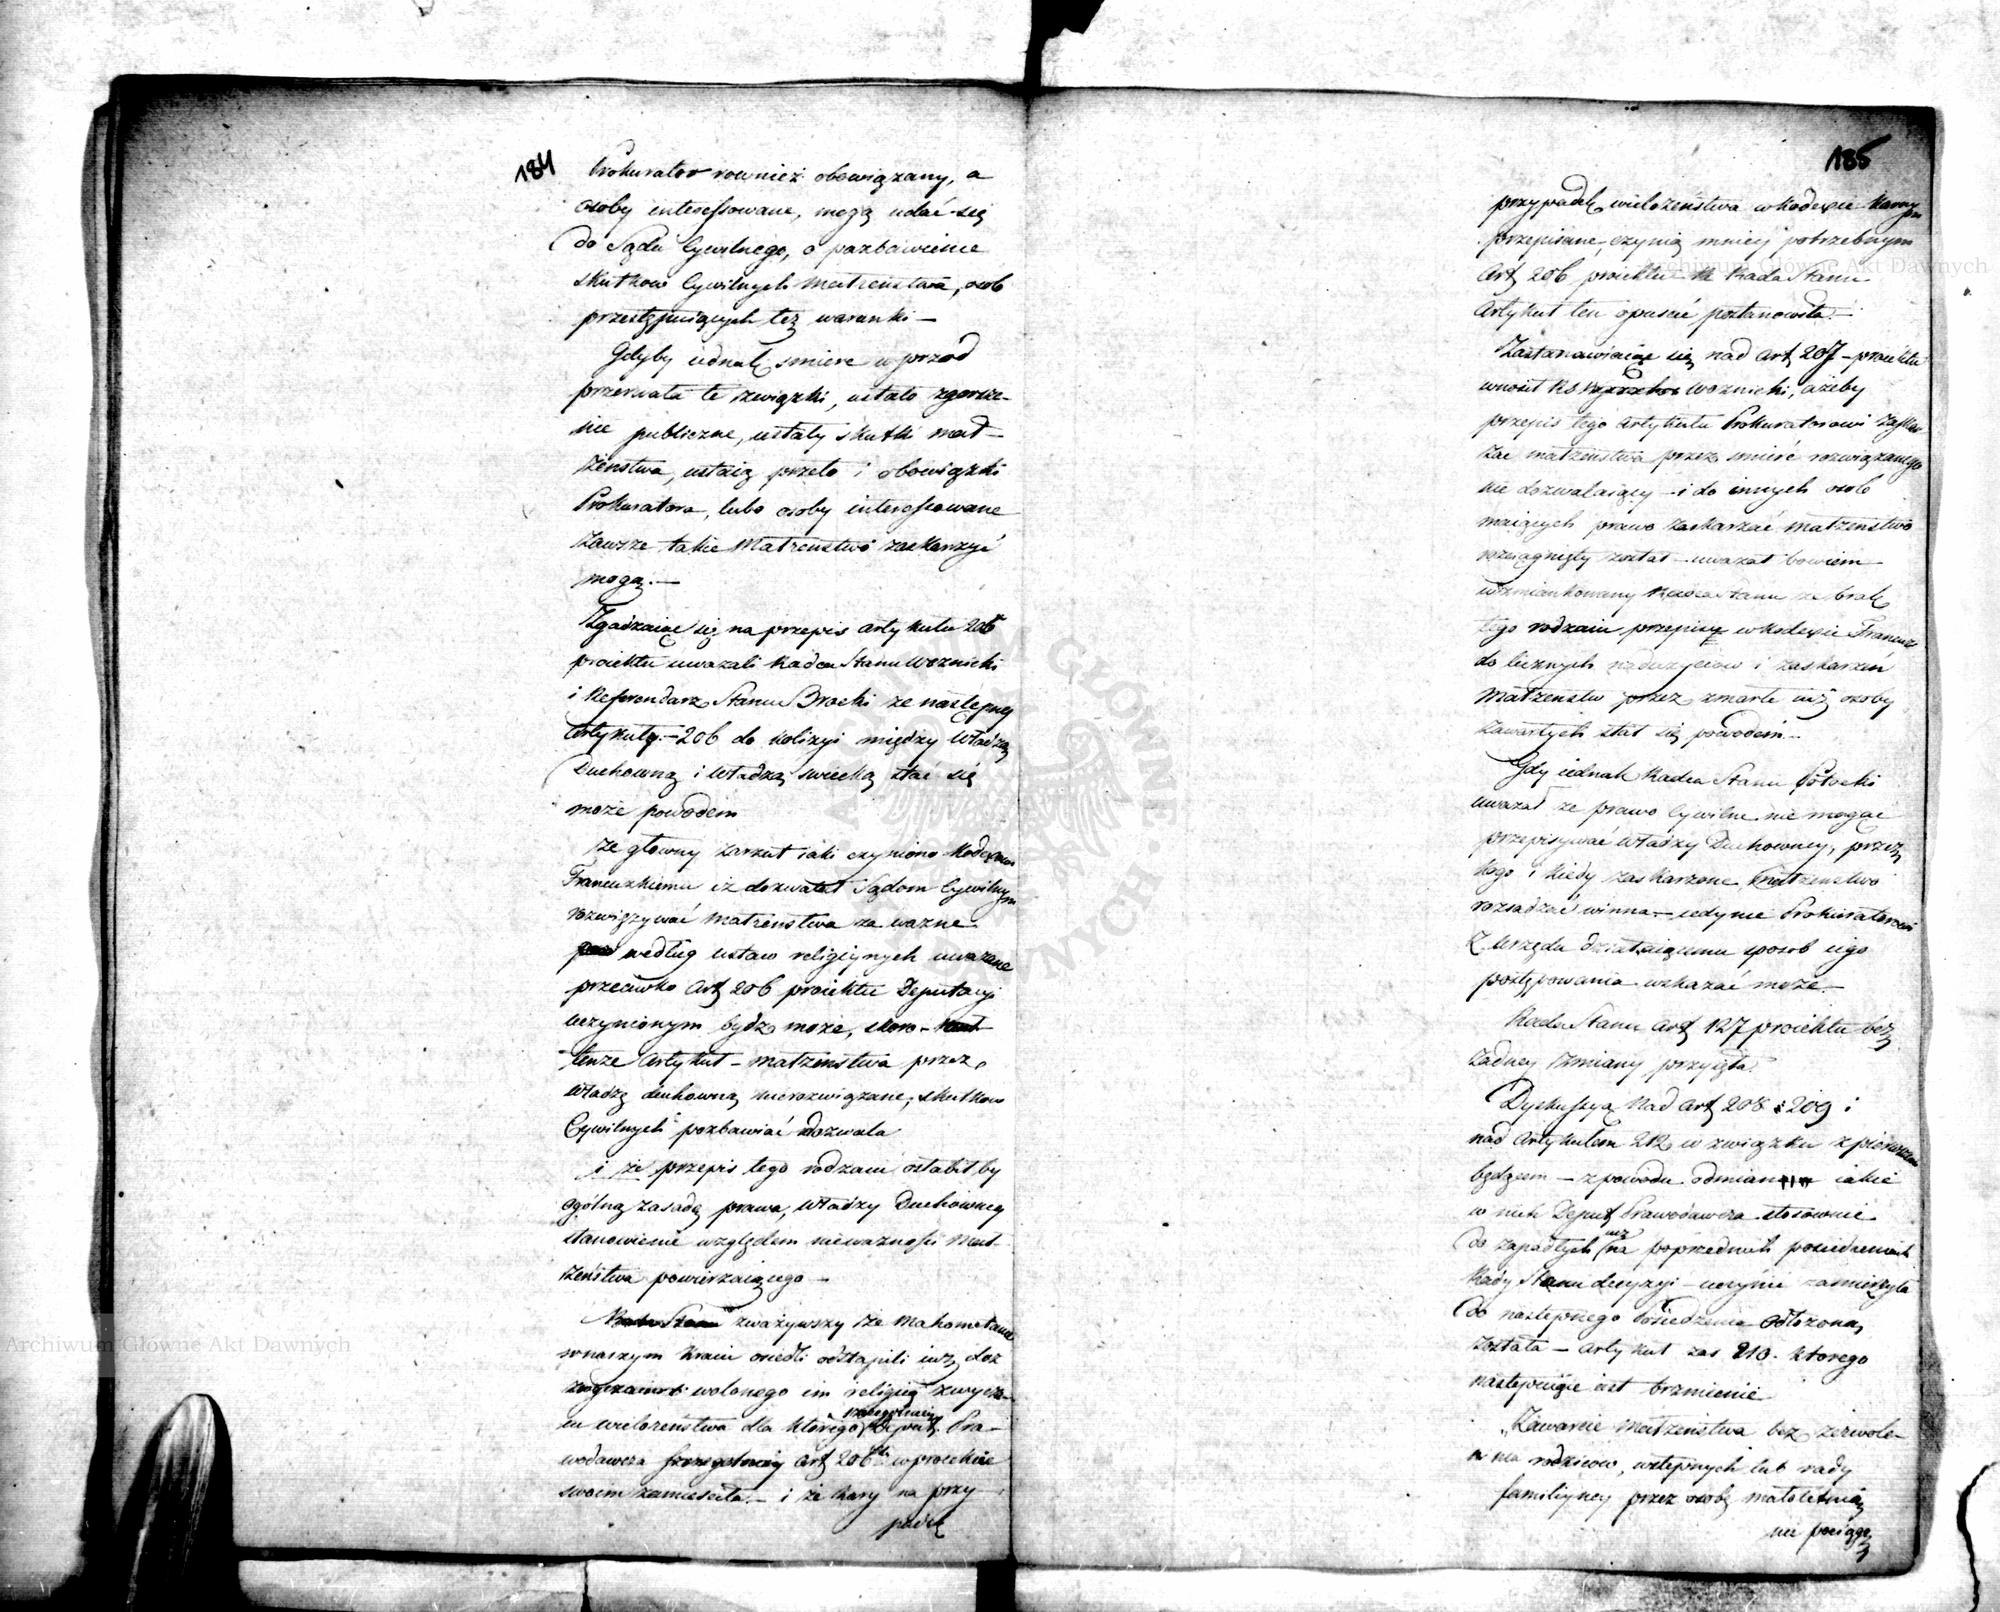 184
Prokurator rownież obowiązany, a
osoby interessowane, mogą udać się
do Sądu Cywilnego, o pozbawienie
skutkow Cywilnych Małżeństwa, osob
przestępuiących też warunki —
Gdyby iednak smierć wprzod
przerwała te związki, ustało zgorsze-
nie publiczne, ustały skutki mał-
żenstwa, ustaią przeto i obowiązki
Prokuratora, lubo osoby interessowane
zawsze takie Małżeństwo zaskarżyć
mogą. —
Zgadzaiąc się na przepis artykułu 205
proiektu uwazali Radca Stanu Woznicki
i Referendarz Stanu Brocki ze następny
Artykuł — 206 do kolizyi między Władzą
Duchowną i Władzą swiecką stać się
może powodem
że głowny zarzut iaki czyniono Kodexowi
Francuzkiemu iż dozwalał Sądom Cywilnym
rozwiązywać małżeństwa za wazne
według ustaw religiynych uwazane
przeciwko Art 206 proiektu Deputacyi
uczynionym bydz może, skoro
tenże Artykuł — małżeństwa przez
władzę duchowną nierozwiązane, skutkow
Cywilnych pozbawiać dozwala
i że przepis tego rodzaiu osłabiłby
ogólną zasadę prawa, władzy Duchowney
stanowienie względem nieważności Mał-
żeństwa powierzaiącego —
Rada Stanu zważywszy że Mahometanie
w naszym Kraiu osiedli odstąpili iuż doz
wolonego im religią zwycza-
iu wielożeństwa dla ktorego szczegolniey Deput. Pra-
wodawcza szczegolniey art 206 w proiekcie
swoim zamieściła — i że kary na przy
padek
185
przypadek wielożeństwa w Kodexie Karnym
przepisane, czynią mniey potrzebnym
Art 206 proiektu — Rada Stanu
Artykuł ten opuścić postanowiła. —
Zastanawiaiąc się nad art 207 — proiektu
wnosił RS Woznicki, ażeby
przepis tego Artykułu Prokuratorowi zaskar
żać małżeństwa przez smierć rozwiązanego
nie dozwalaiący — i do innych osob
maiących prawo zaskarżać małżeństwo
rozciągnięty został — uwazał bowiem
wzmiankowany Radca Stanu ze brak
tego rodzaiu przepisu w kodexie Francuz
do licznych nadużyciow i zaskarżeń
Małżenstw przez zmarłe iuż osoby
zawartych stał się powodem —
Gdy iednak Radca Stanu Potocki
uwazał ze prawo Cywilne nie mogąc
przepisywać władzy Duchowney, przez
kogo i kiedy zaskarżone małżenstwo
rozsądzać winna — iedynie Prokuratorowi
z urzędu działaiącemu sposob iego
postępowania wskazać może —
Rada Stanu Art 127 proiektu bez
żadney zmiany przyięła.
Dyskussya nad Art 208 i 209 i
nad Artykułem 212 w związku z pierwszemi
będącem — z powodu odmian iakie
w nich Deput Prawodawcza stosownie
do zapadłych iuż na poprzednich posiedzeniach
Rady Stanu decyzyi — uczynić zamierzyła
do następnego Posiedzenia odłożoną
została — Artykuł zas 210. ktorego
następuiące iest brzmienie
„Zawarcie małżeństwa bez zezwole-
nia rodzicow, wstępnych lub rady
familiyney przez osobę małoletnią
nie pociąga